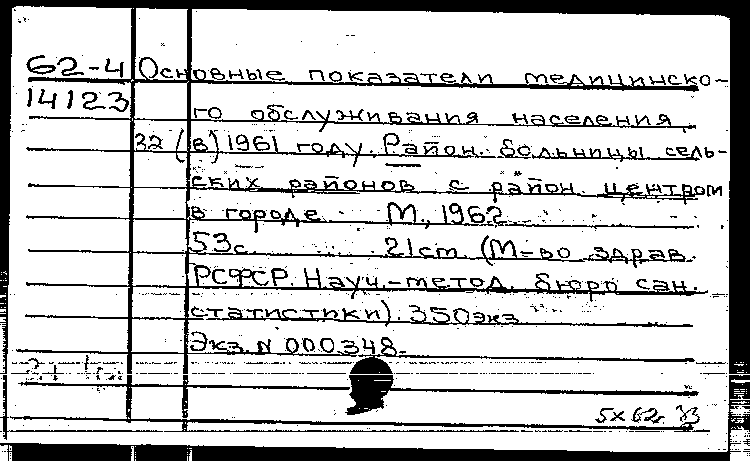 62-4 Основные показатели медицинско-
14123 го обслуживания населения
32 (в) 1961 году. Район. больницы сель-
ских районов с район. центром
в городе М., 1962
53с. 21см. (М-во здрав.
РСФСР. Науч.-метод. бюро сан.
статистики). 350экз.
Экз. N 000348.
5х62г.